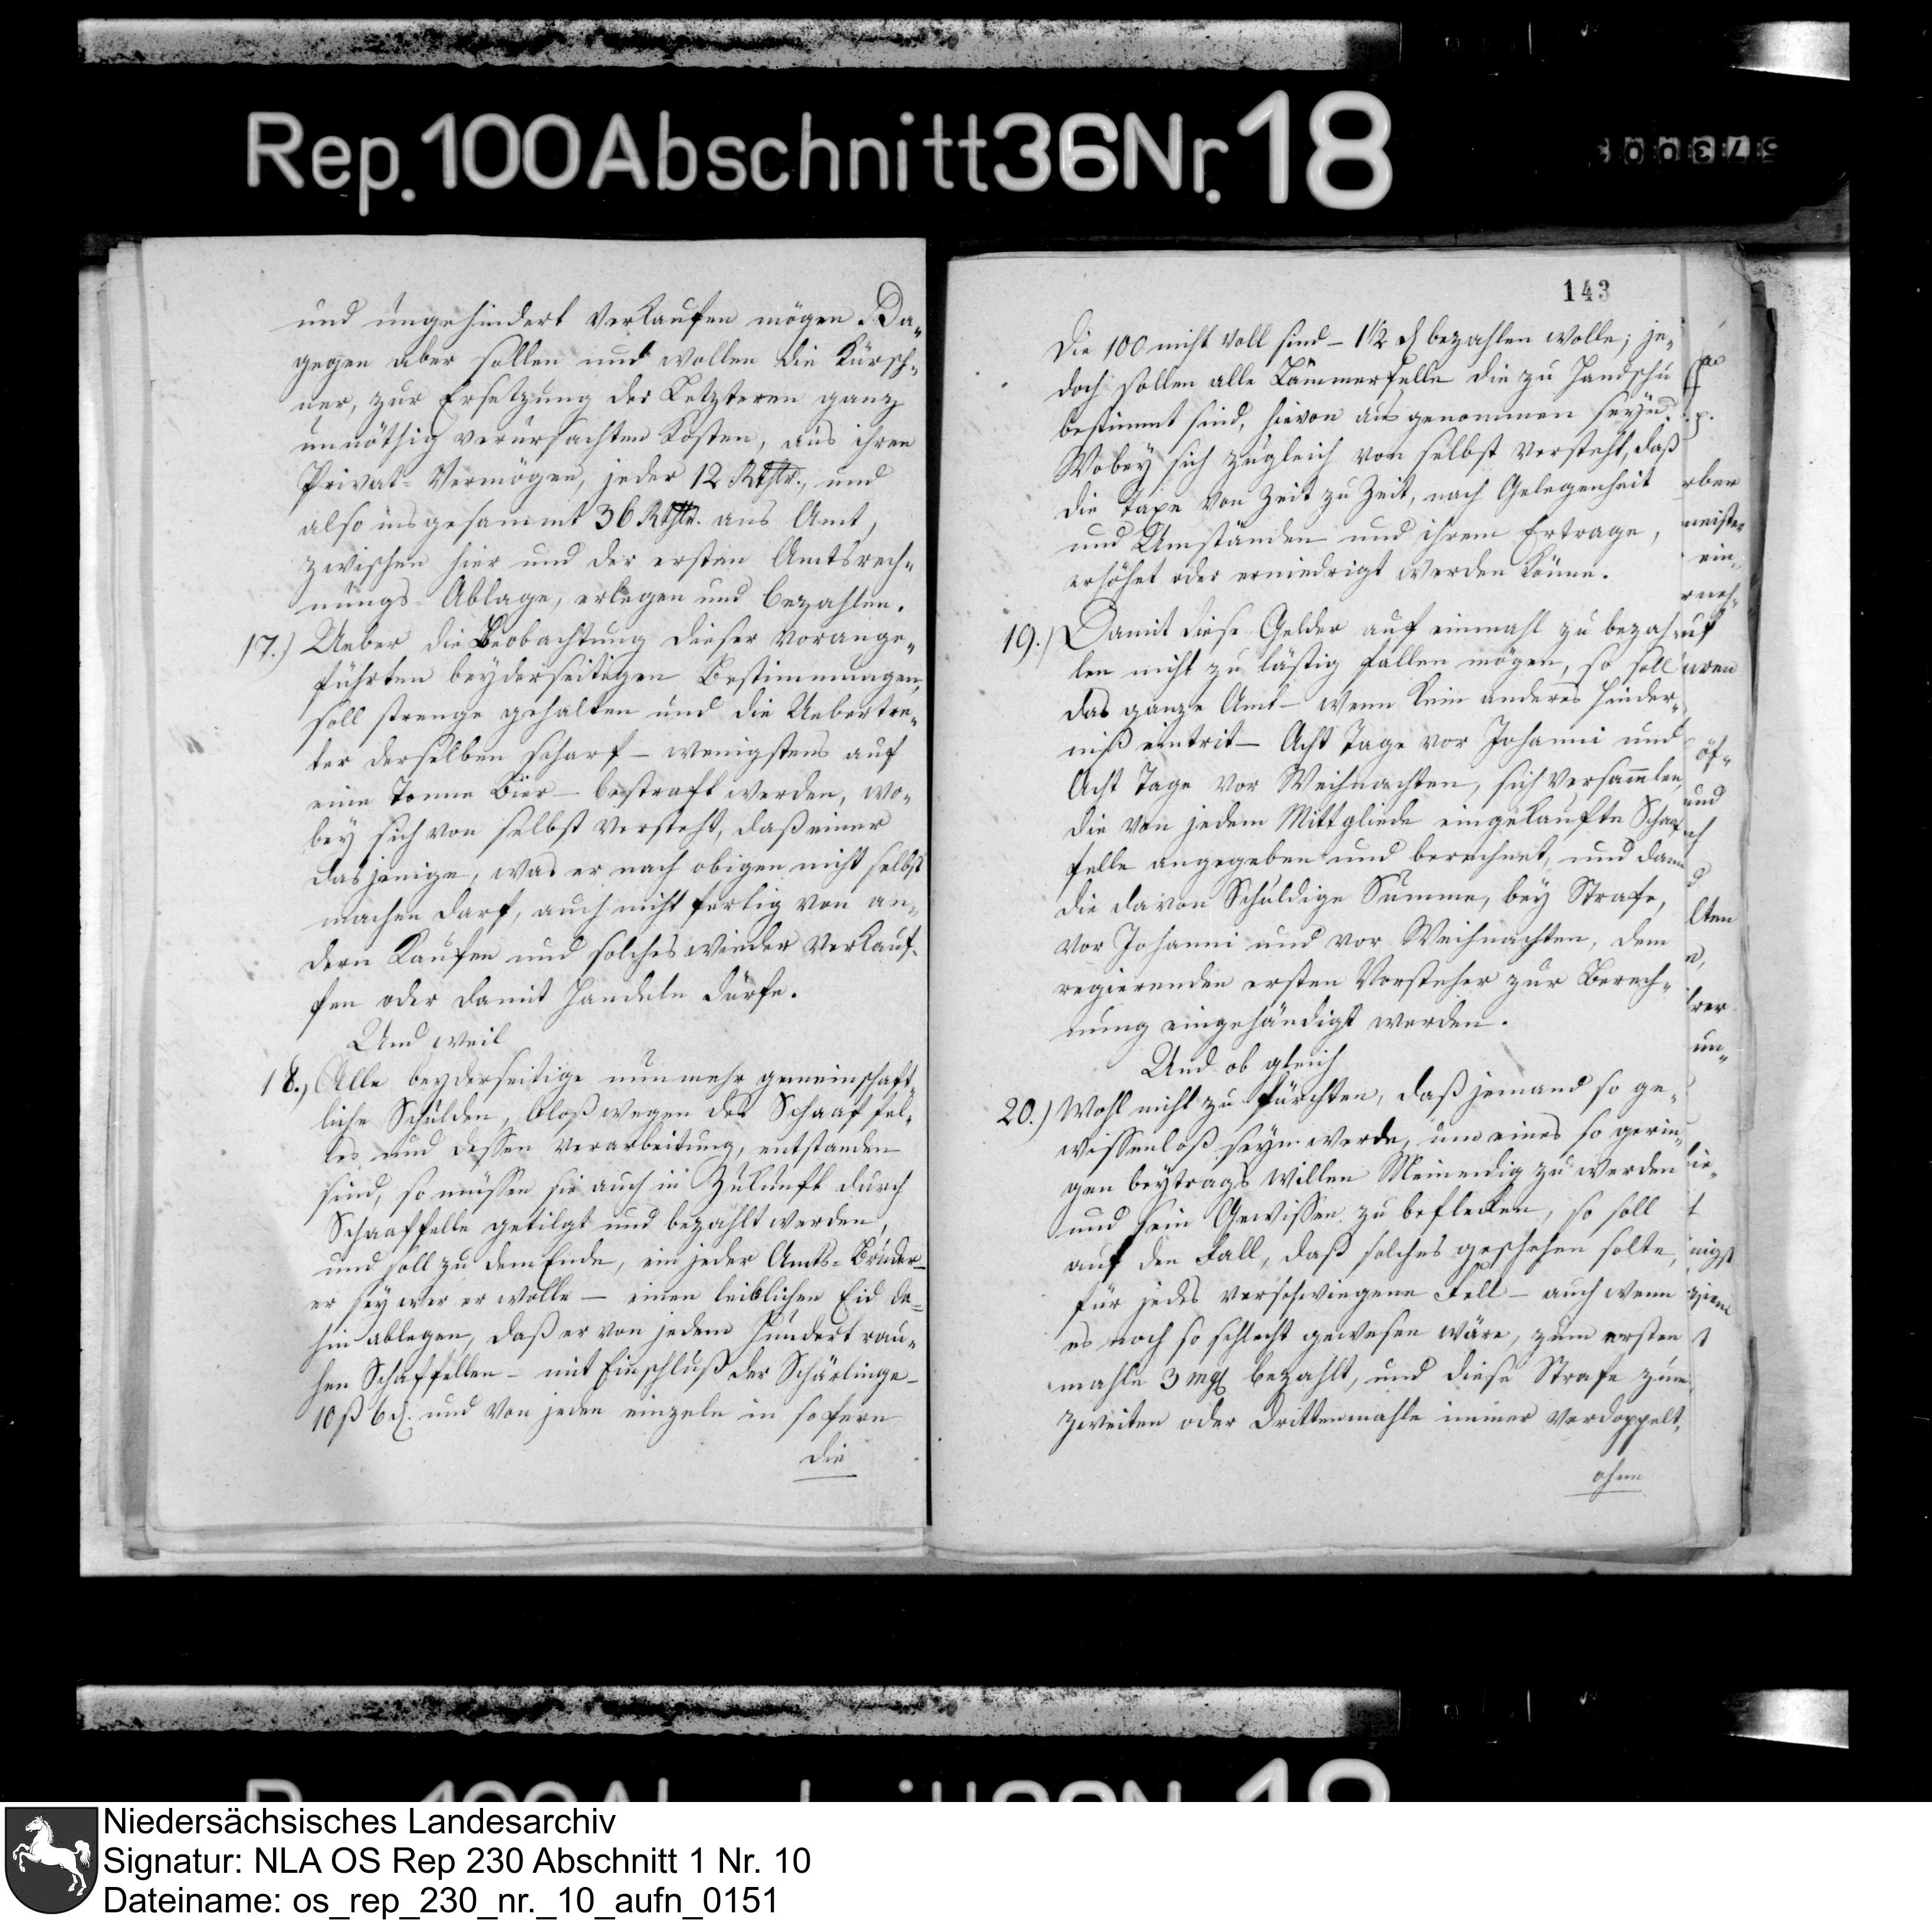 Rep. 100 Abschnitt 36 Nr. 18
und ungehindert verkaufen mögen. Da„
gegen aber sollen und wollen die Kürsch„
ner, zur Ersetzung der Letzteren ganz
unnöthig verursachten Kosten, aus ihren
Privat-Vermögen, jeder 12 Rthlr., und
also insgesammt 36 Rthlr. ans Amt,
zwischen hier und der ersten Amtsrech„
nungs-Ablage, erlegen und bezahlen.
17.) Ueber die Beobachtung dieser vorange„
führten beyderseitigen Bestimmungen,
soll strenge gehalten und die Uebertre„
ter derselben scharf – wenigstens auf
eine Tonne Bier – bestraft werden, wo„
bey sich von selbst versteht, daß einer
dasjenige, was er nach obigen nicht selbst
machen darf, auch nicht fertig von an„
dern Kaufen und solches wieder verkauf„
fen oder damit Handeln dürfe.
Und weil
18., Alle beyderseitige nunmehr gemeinschaft„
liche Schulden, bloß wegen des Schaaffel„
les und dessen Verarbeitung, entstanden
sind, so müssen sie auch in Zukunft durch
Schaaffelle getilgt und bezahlt werden,
und soll zu dem Ende, ein jeder Amts-Bruder –
er sey wer er wolle – einen leiblichen Eid da„
hin ablegen, daß er von jedem Hundert rau„
hen Schaffellen – mit Einschluß der Schärlinge –
10 ß 6 d. und von jeden einzeln in sofern
die
143
Die 100 nicht voll sind – 1 1/2 d bezahlen wolle; je„
doch sollen alle Lämmerfelle die zu Handschu
bestimmt sind, hievon ausgenommen seyn.
Wobey sich zugleich von selbst versteht, daß
die Taxe von Zeit zu Zeit, nach Gelegenheit
und Umständen und ihrem Ertrage,
erhöhet oder erniedrigt werden könne.
19.) Damit diese Gelder auf einmahl zu bezah
len nicht zu lästig fallen mögen, so soll
das ganze Amt – wenn kein anderes Hinder„
niß eintrit – Acht Tage vor Johanni und
Acht Tage vor Weihnachten, sich versammlen,
die von jedem Mittgliede eingekaufte Schaf
felle angegeben und berechnet, und dann
die davon Schuldige Summe, bey Strafe,
vor Johanni und vor Weihnachten, dem
regierenden ersten Vorsteher zur Berech„
nung eingehändigt werden.
Und ob gleich
20.) Wohl nicht zu fürchten, daß jemand so ge„
wissenloß seyn werde, um eines so gerin„
gen beytrags willen Meineidig zu werden
und sein Gewissen zu beflecken, so soll
auf den Fall, daß solches geschehen solte,
für jedes verschwiegene Fell – auch wenn
es noch so schlecht gewesen wäre, zum ersten
mahle 3 mgl bezahlt, und diese Strafe zum
zweiten oder drittenmahle immer verdoppelt,
ohne
Niedersächsisches Landesarchiv
Signatur: NLA OS Rep 230 Abschnitt 1 Nr. 10
Dateiname: os_rep_230_nr._10_aufn_0151